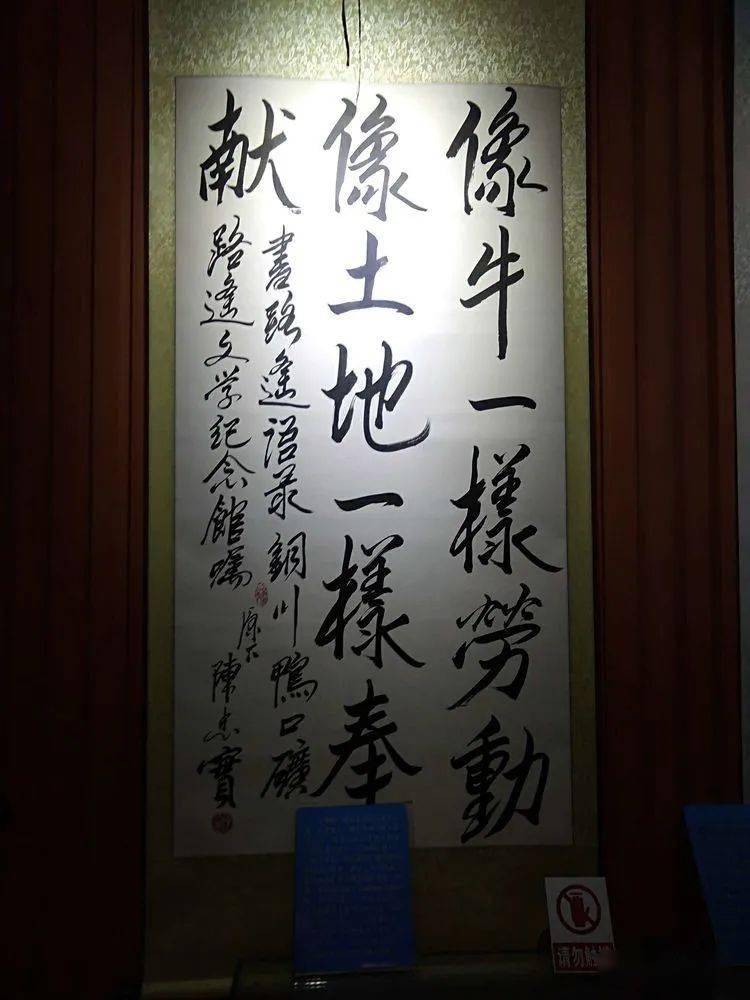 像牛一樣勞動
像土地一樣奉
献
書路遙语录 銅川鴨口礦
路遙文学纪念館嘱
原下
陳忠實
请勿触摸